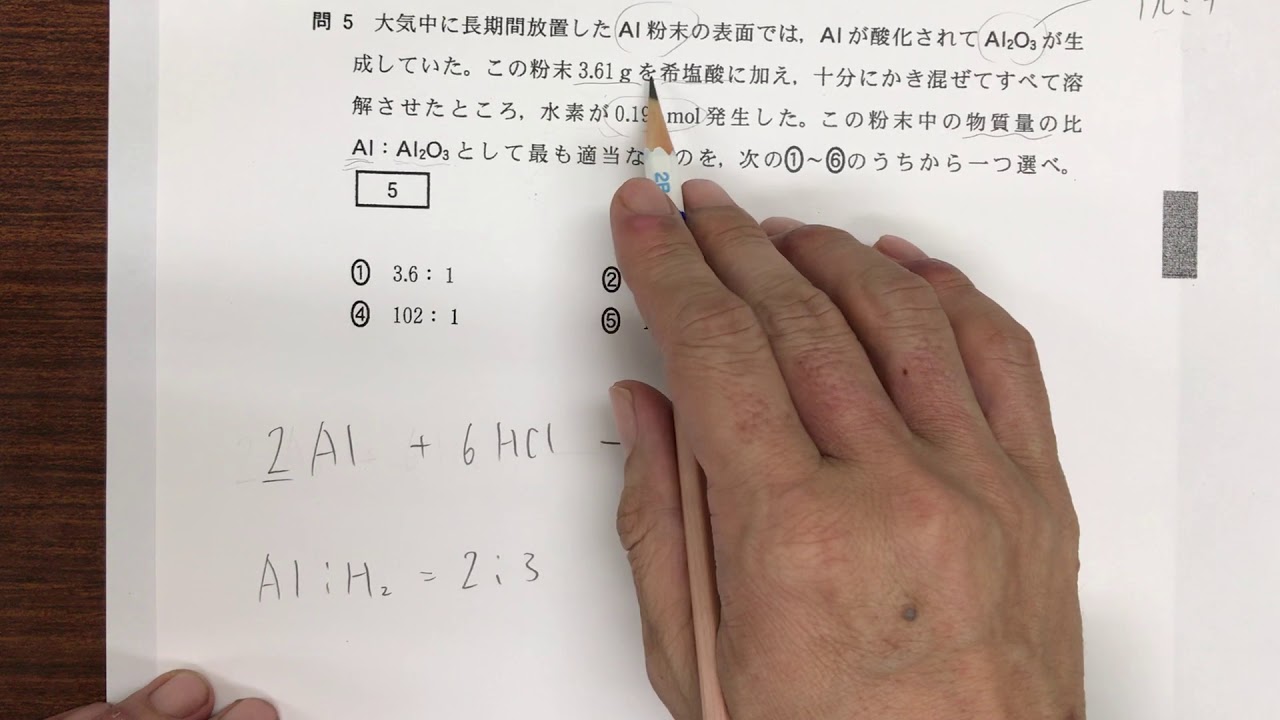 問 5 大気中に長期間放置した Al 粉末の表面では，Al が酸化されて Al₂O₃ が生
成していた。この粉末 3.61 g を希塩酸に加え，十分にかき混ぜてすべて溶
解させたところ，水素が 0.19 mol 発生した。この粉末中の物質量の比
Al：Al₂O₃ として最も適当な のを，次の①～⑥のうちから一つ選べ。
5
① 3.6：1 ②
④ 102：1 ⑤
2Al + 6HCl
Al : H₂ = 2 : 3
2B